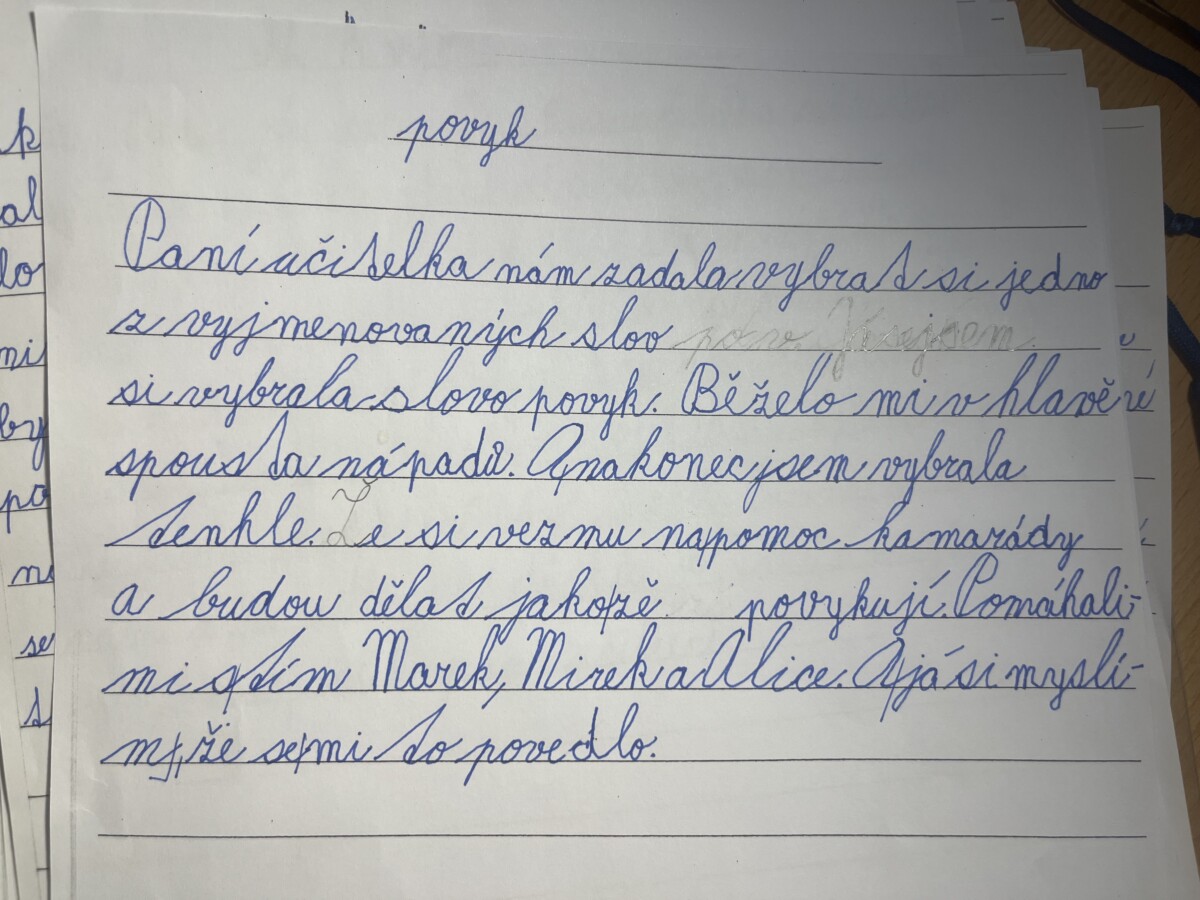 povyk
Paní učitelka nám zadala vybrat si jedno
z vyjmenovaných slov
si vybrala slovo povyk. Běželo mi v hlavě
spousta nápadů. A nakonec jsem vybrala
tenhle. Že si vezmu na pomoc kamarády
a budou dělat jako že povykují. Pomáhali-
mi s tím Marek, Mirek a Alice. A já si myslí-
m, že se mi to povedlo.
k
al
lo
mi
by
po
se